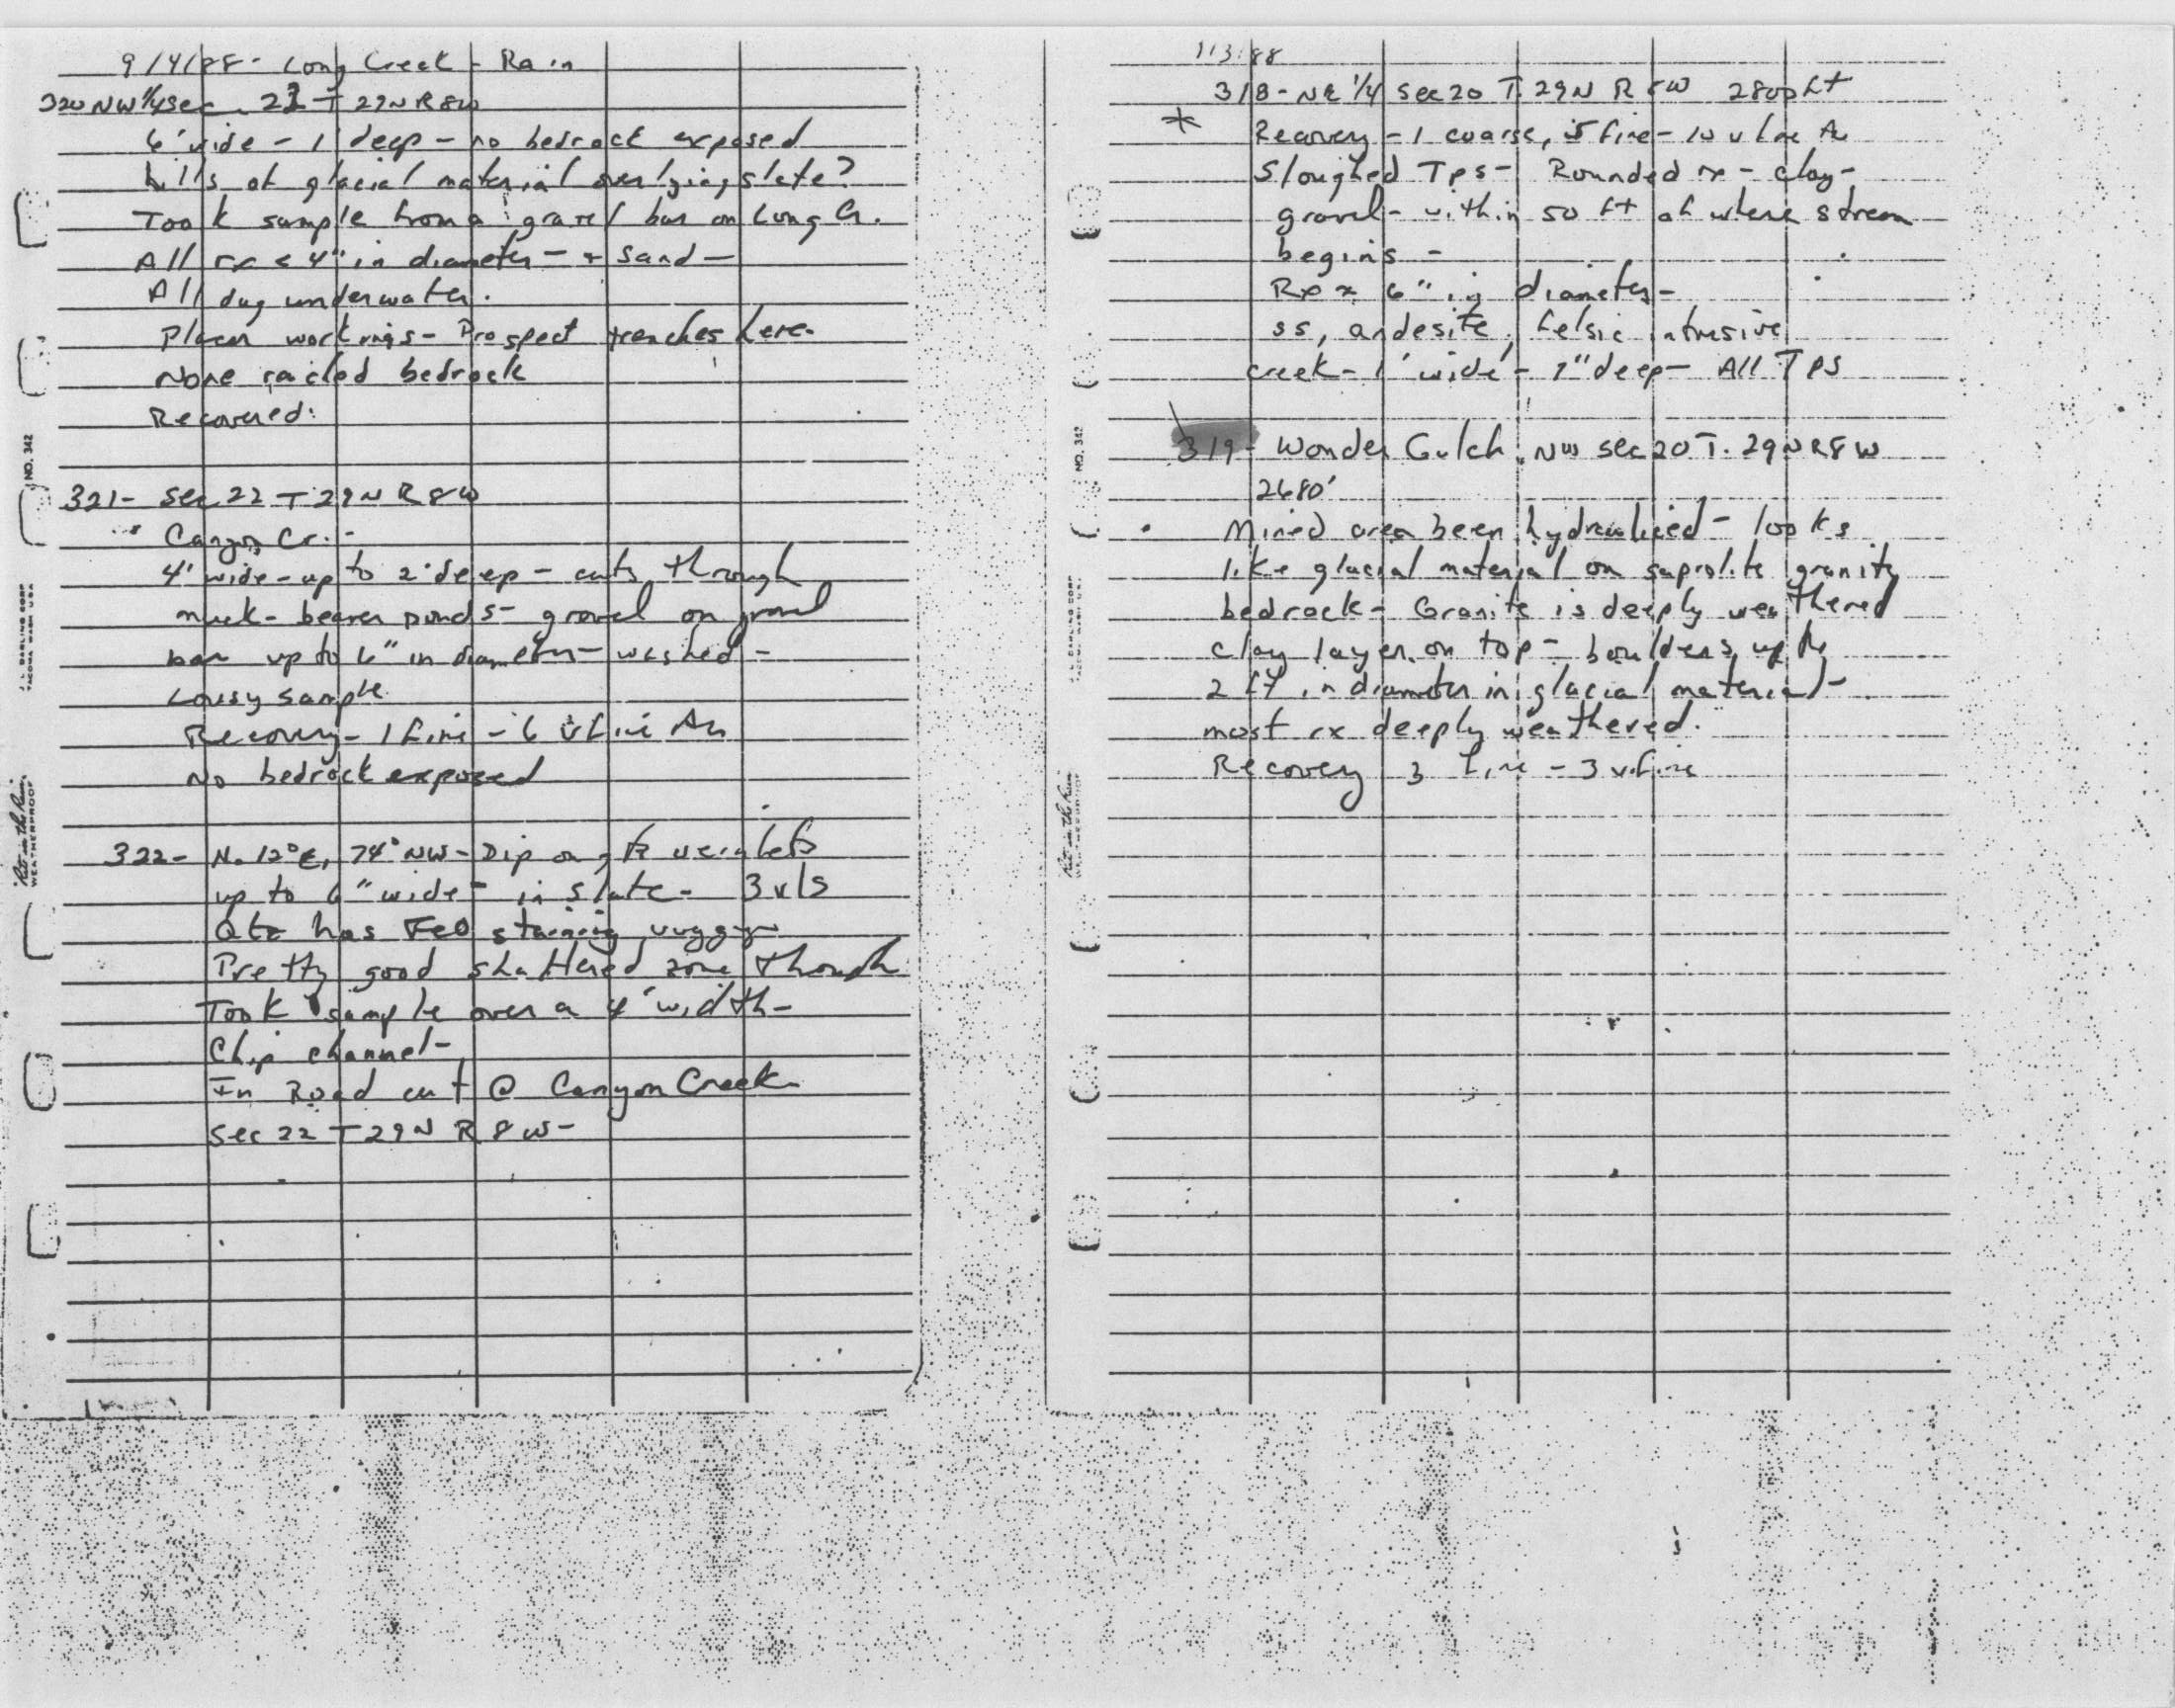 9/4/88 - Long Creek - Rain
320 NW 1/4 Sec. 21 T 29N R 8W
6' wide - 1' deep - no bedrock exposed
hills of glacial material overlying slate?
Took sample from a gravel bar on Long Cr.
All rx < 4" in diameter - + sand -
All dug underwater.
Placer workings - Prospect trenches here-
None raicled bedrock
Recovered:
321- Sec 22 T 29N R 8W
Canyon Cr. -
4' wide - up to 2' deep - cuts through
muck - beaver ponds - gravel on gravel
bar up to 6" in diameter - washed -
Lousy sample
Recovery - 1 fine - 6 v fine Au
No bedrock exposed
322- N. 12°E, 74° NW - Dip on qtz veinlets
up to 6" wide - in slate - 3 vls
Qtz has FeO staining, vuggy
Pretty good shattered zone though
Took sample over a 4' width -
Chip channel -
In Road cut @ Canyon Creek
Sec 22 T 29N R 8W -
NO. 342
J. L. DARLING CORP.
TACOMA, WASH. USA
"Rite in the Rain"
WEATHERPROOF
/3/88
318 - NE 1/4 Sec 20 T. 29N R 8W 2800 ft
* Recovery - 1 coarse, 5 fine - 10 v fine Au
Sloughed Tps - Rounded rx - clay -
gravel - within 50 ft of where stream
begins -
Rx ≈ 6" in diameter -
ss, andesite, felsic intrusive
creek - 1' wide - 7" deep - All Tps
319 - Wonder Gulch. NW Sec 20 T. 29N R 8W
2680'
Mined area been hydrauliced - looks
like glacial material on saprolite granite
bedrock - Granite is deeply weathered
clay layer on top - boulders up to
2 ft in diameter in glacial material -
most rx deeply weathered.
Recovery 3 fine - 3 v. fine
NO. 342
J. L. DARLING CORP.
"Rite in the Rain"